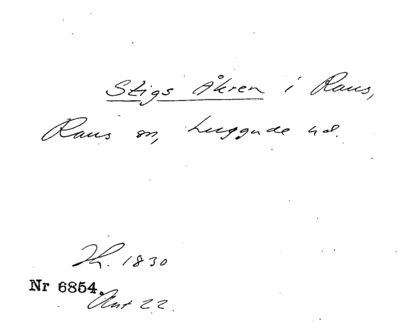 Stigs Åkren i Raus,
Raus sn, Luggude hd.
Th. 1830
Nr 6854.
Ant 22.